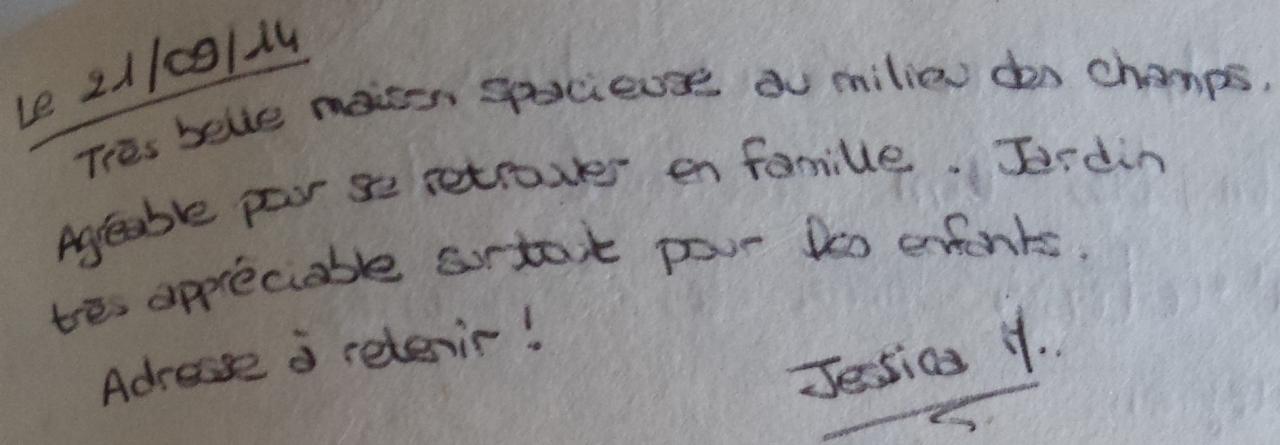 Le 21/09/14
Très belle maison spacieuse au milieu des champs.
Agréable pour se retrouver en famille. Jardin
très appréciable surtout pour les enfants.
Adresse à retenir !
Jessica